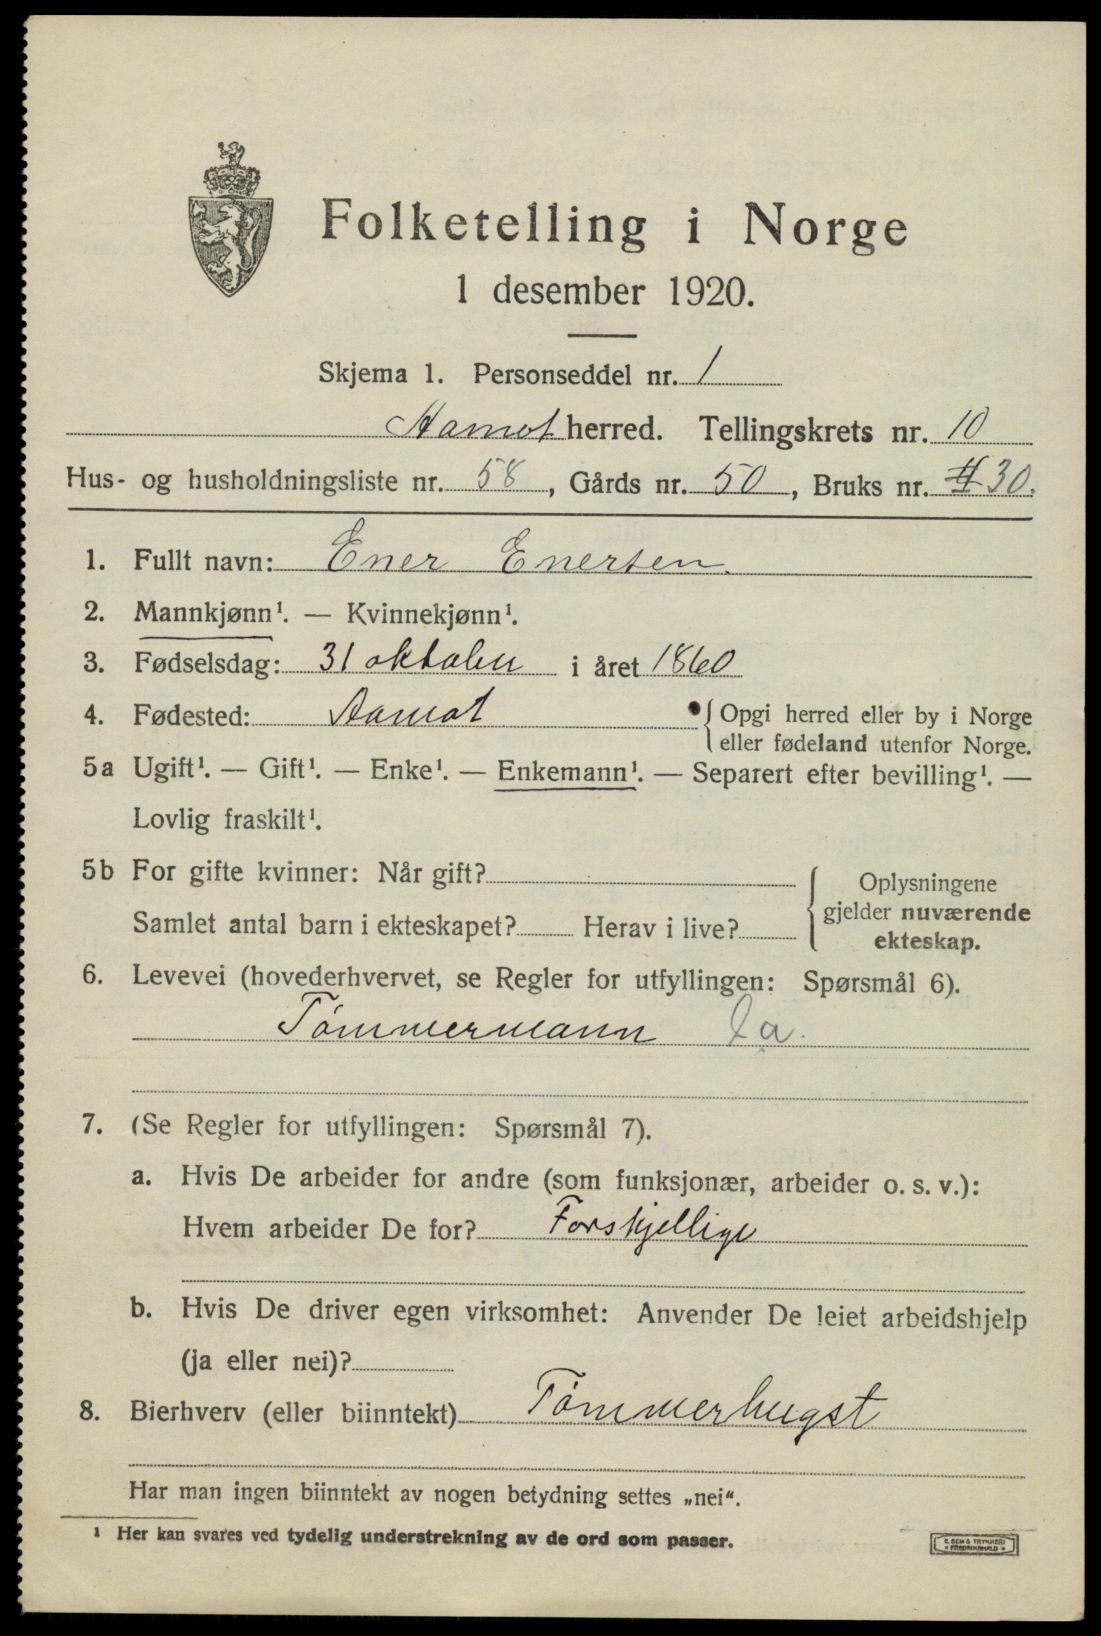 Folketelling i Norge
1 desember 1920.
Skjema 1. Personseddel nr. 1
Aamot herred. Tellingskrets nr. 10
Hus- og husholdningsliste nr. 58, Gårds nr. 50, Bruks nr. 30.
1. Fullt navn: Ener Enersen.
2. Mannkjønn¹. — Kvinnekjønn¹.
3. Fødselsdag: 31 oktober i året 1860
4. Fødested: Aamot { Opgi herred eller by i Norge
eller fødeland utenfor Norge.
5a Ugift¹. — Gift¹. — Enke¹. — Enkemann¹. — Separert efter bevilling¹. —
Lovlig fraskilt¹.
5b For gifte kvinner: Når gift?
Samlet antal barn i ekteskapet? Herav i live?
{ Oplysningene
gjelder nuværende
ekteskap.
6. Levevei (hovederhvervet, se Regler for utfyllingen: Spørsmål 6).
Tømmermann
7. (Se Regler for utfyllingen: Spørsmål 7).
a. Hvis De arbeider for andre (som funksjonær, arbeider o. s. v.):
Hvem arbeider De for? Forskjellige
b. Hvis De driver egen virksomhet: Anvender De leiet arbeidshjelp
(ja eller nei)?
8. Bierhverv (eller biinntekt) Tømmerhugst
Har man ingen biinntekt av nogen betydning settes „nei“.
¹ Her kan svares ved tydelig understrekning av de ord som passer.